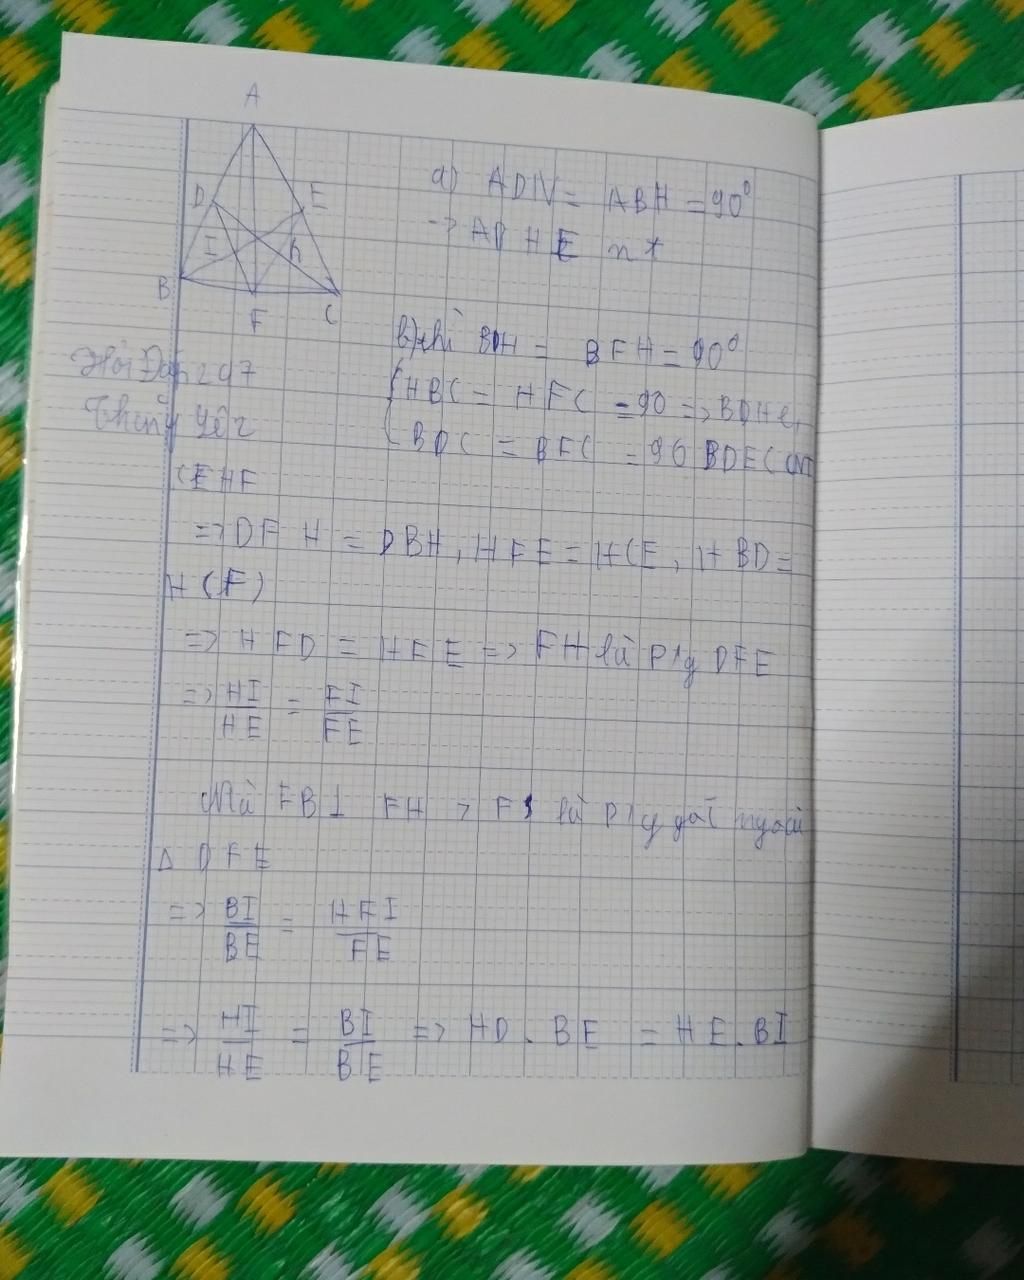 A
D E
I h
B F C
a) ADN = ABH = 90⁰
-> AD H E n t
b) BDH = BFH = 90⁰
Hỏi Đáp 247
{HBC = HFC = 90 => BDHe,
BDC = BFC = 90 BDEC
CEHF
=> DF H = DBH, HFE = HCE, HBD =
H(F)
=> HFD = HFE => FH là P/g DFE
=> HI/HE = FI/FE
Mà FB ⊥ FH > F là P/g góc ngoài
Δ DFE
=> BI/BE = HFI/FE
=> HI/HE = BI/BE => HD . BE = HE . BI